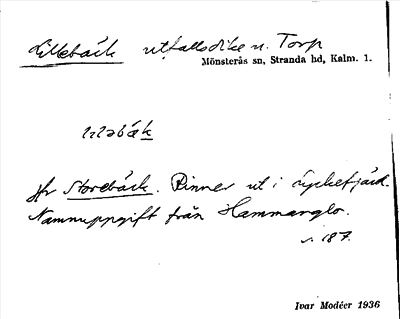 Lillebäck utfallsdike n. Torp
Mönsterås sn, Stranda hd, Kalm. l.
Jfr Storebäck. Rinner ut i
Namnuppgift från Hammarglo.
s. 187.
Ivar Modéer 1936